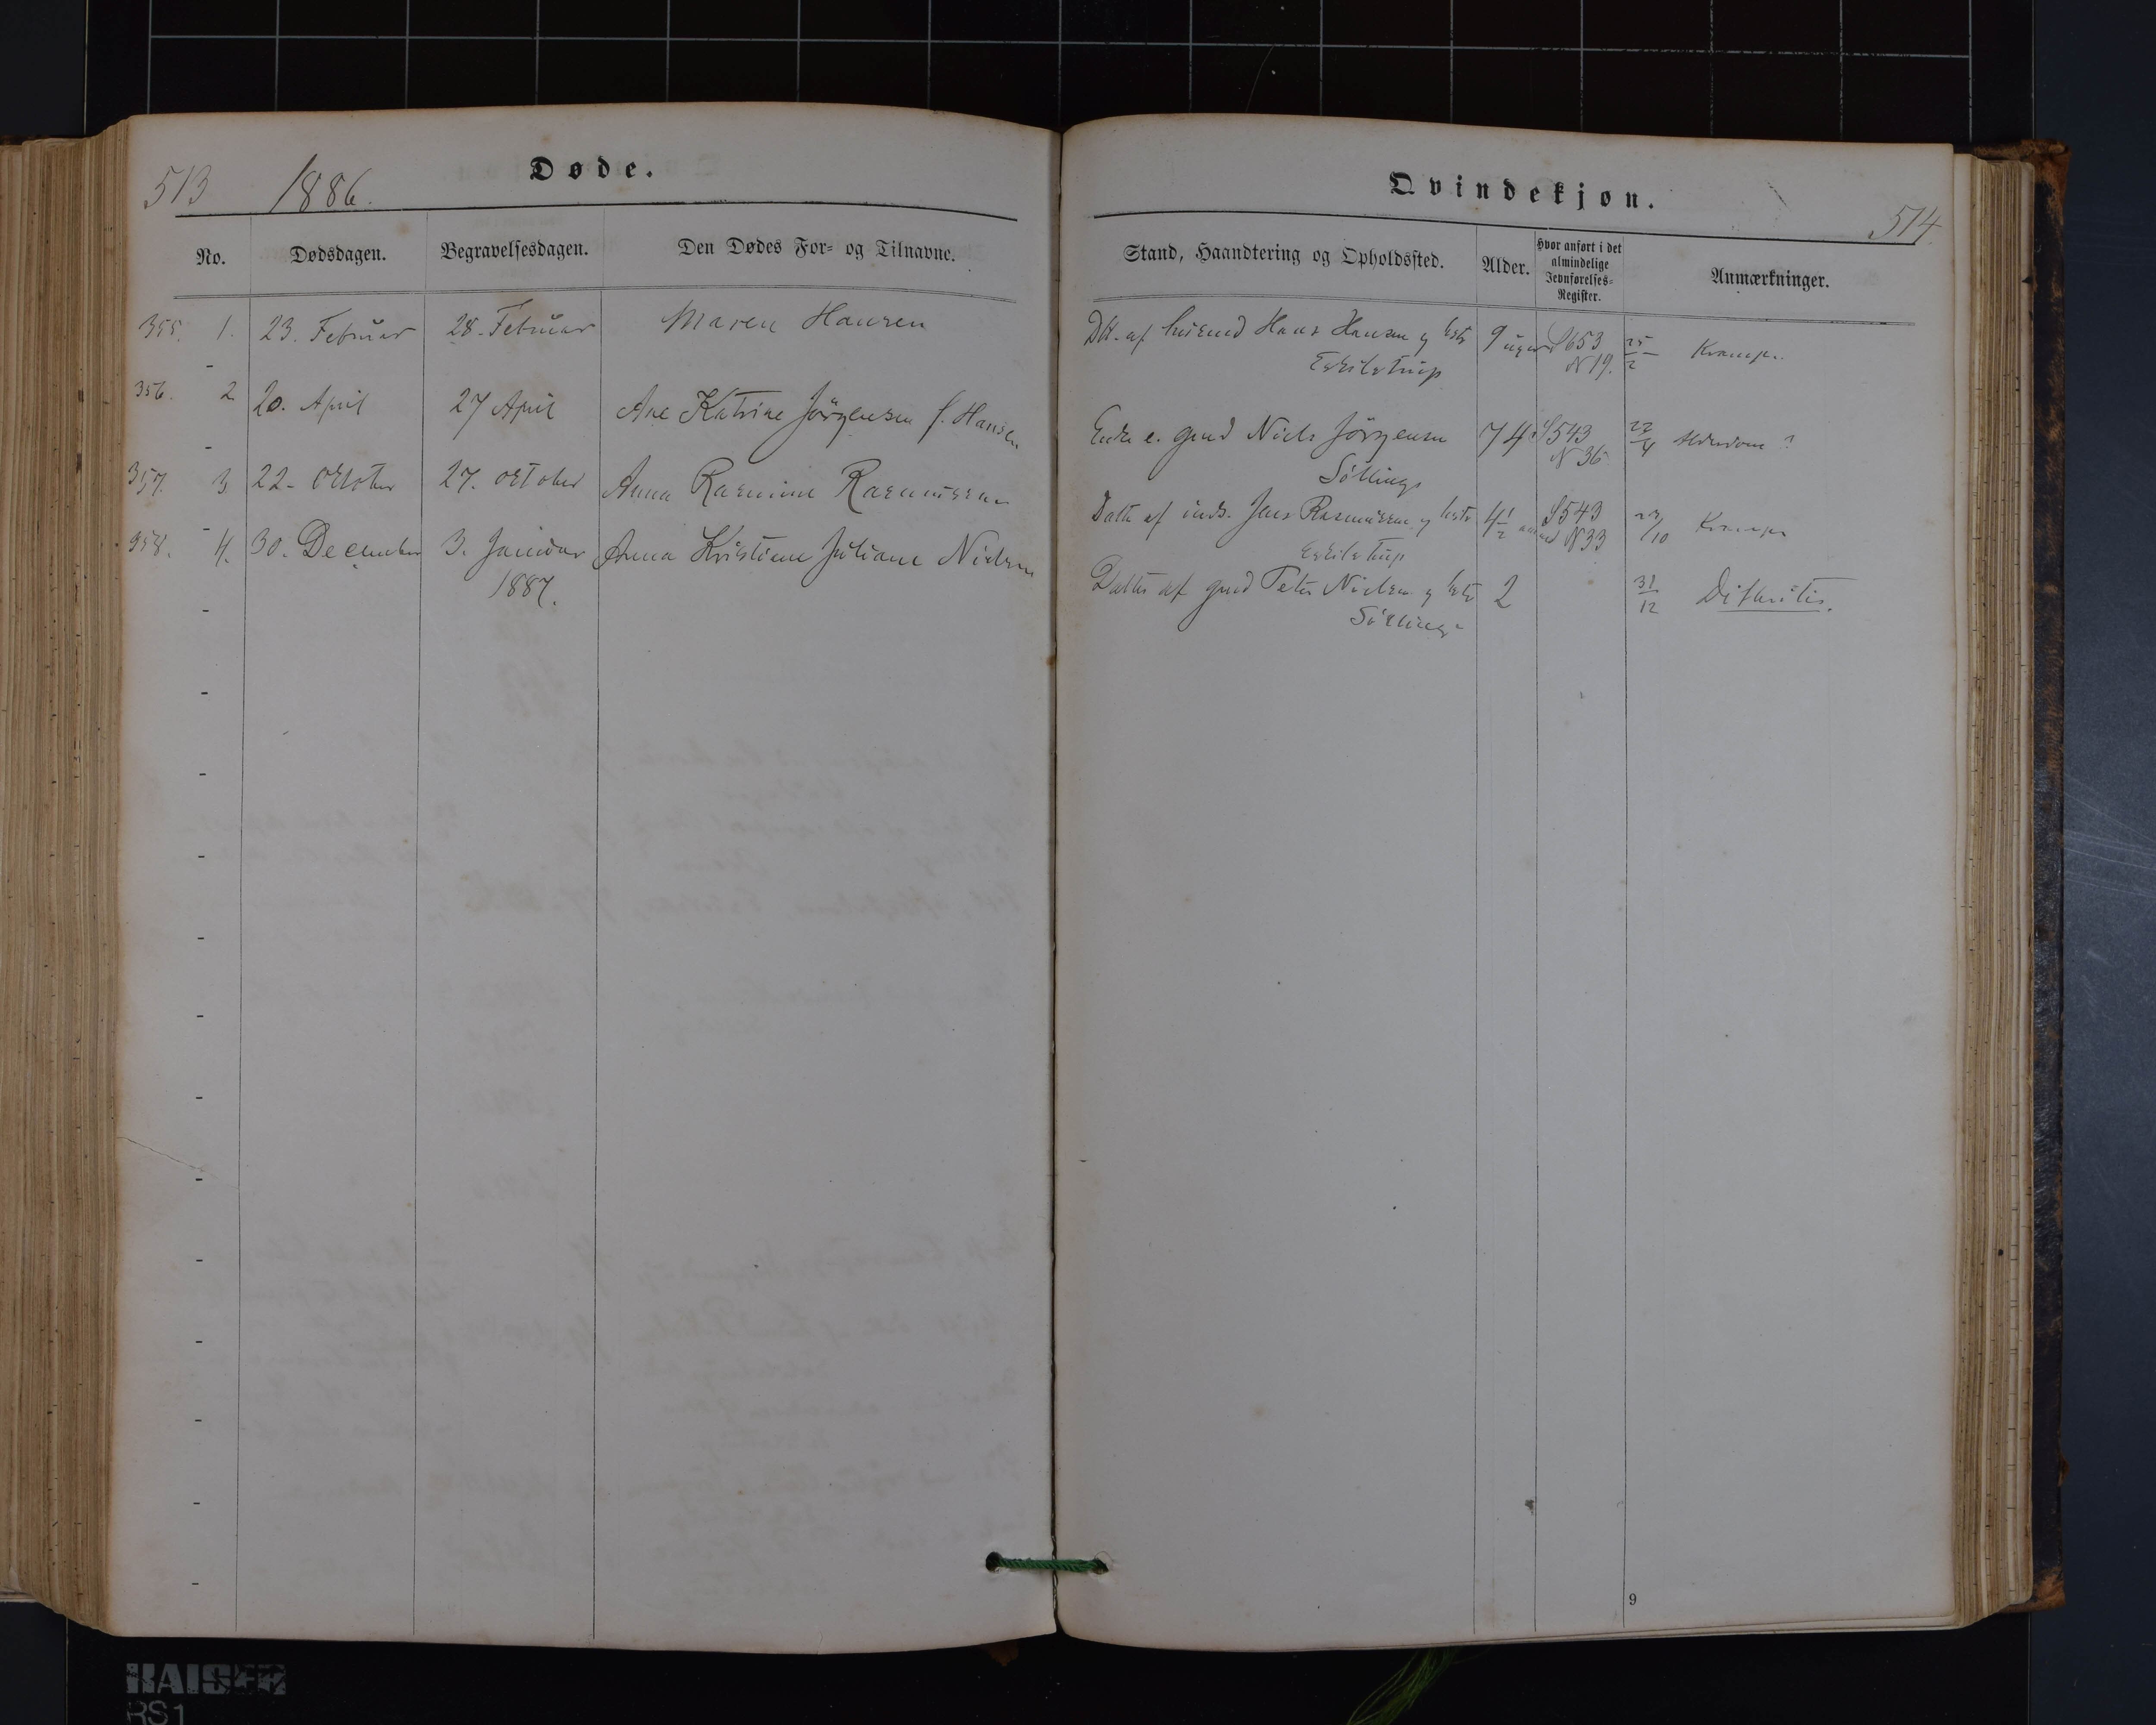 513 1886. Døde.
No. Dødsdagen. Begravelsesdagen. Den Dødes For- og Tilnavne.
355. 1. 23. Februar 28. Februar Maren Hansen
356. 2. 20. April 27 April Ane Katrine Jörgensen f. Hansen
357. 3 22. October 27. October Anna Rasmine Rasmussen
358. 4. 30. December 3. Januar Anna Kristiane Juliane Nielsen
1887.
Qvindekjøn. 514
Stand, Haandtering og Opholdssted. Alder. Hvor anført i det almindelige Jevnførelses-Register. Anmærkninger.
Dtt. af husmd Hans Hansen og hstr 9 uger S653 25/2 Krampe.
Eskilstrup N19.
Enke e. gmd Niels Jörgensen 74 S543 22/4 Alderdom ?
Sölling N36
Datte af inds. Jens Rasmussen og hstr 4 1/2 S543 /10 Krampe
Eskilstrup N33
Datter af gmd Peter Nielsen og hstr 2 31/12 Difteritis.
Sölling
9
KAISER
RS1